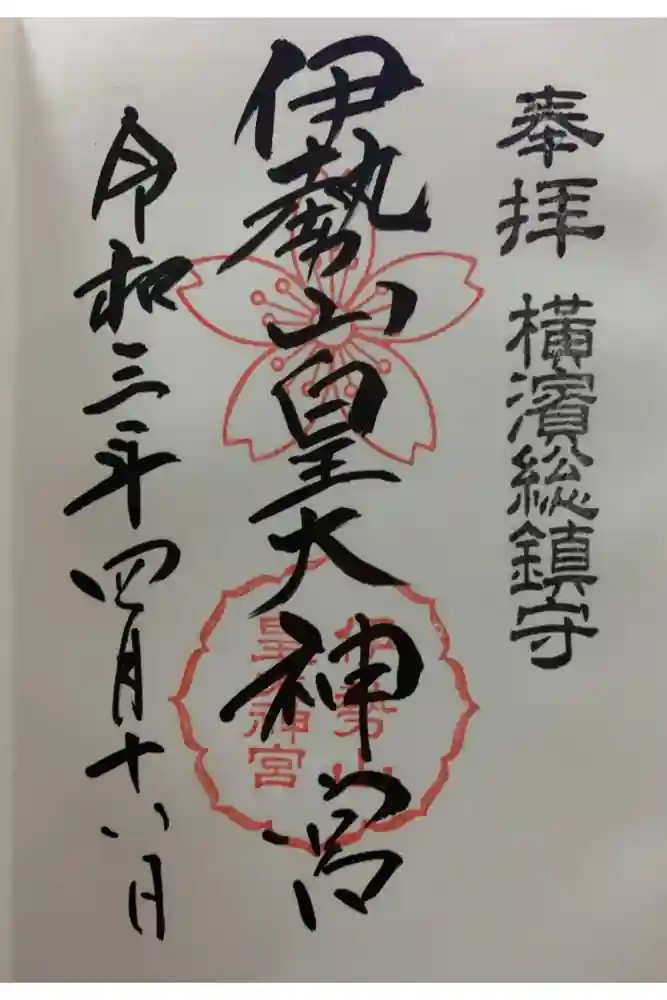 奉拝 横濱総鎮守
伊勢山皇大神宮
伊勢山
皇大神宮
令和三年四月十八日